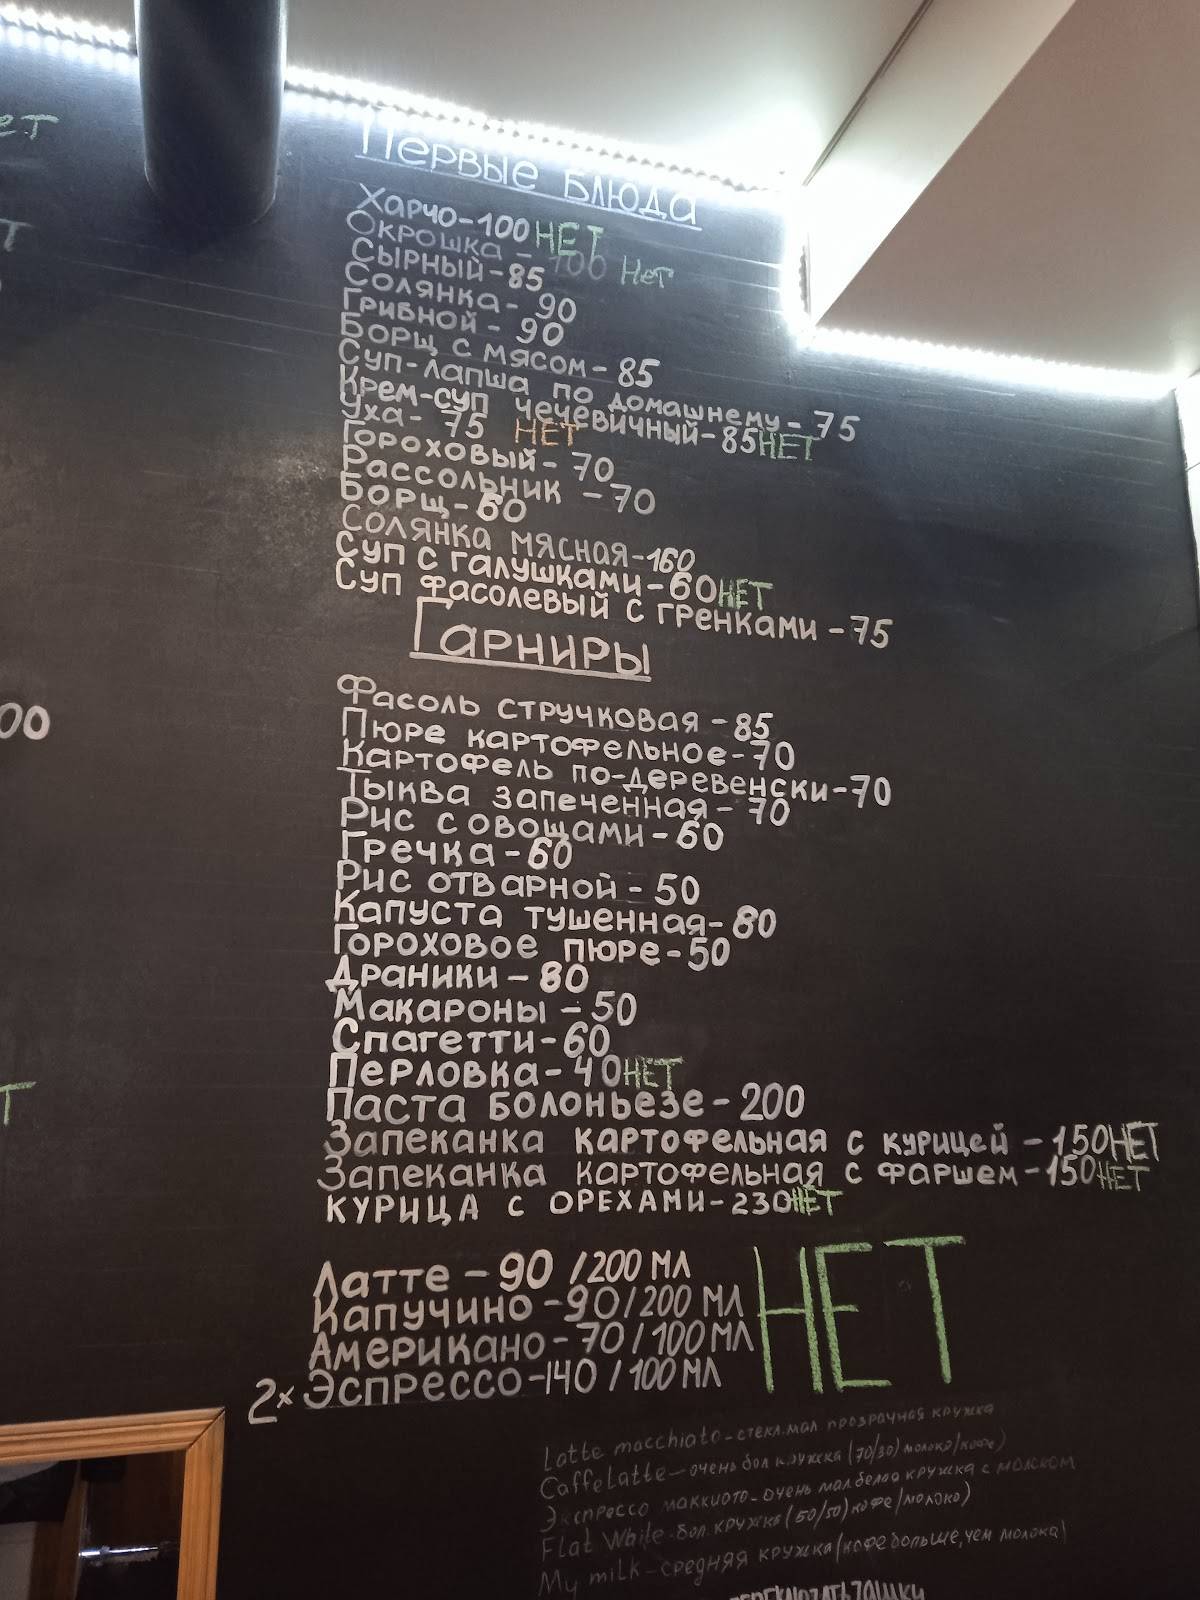 Первые блюда
Харчо-100 НЕТ
Окрошка - 100 Нет
Сырный-85
Солянка-90
Грибной-90
Борщ с мясом-85
Суп-лапша по домашнему-75
Крем-суп чечевичный-85 НЕТ
Уха-75 НЕТ
Гороховый-70
Рассольник -70
Борщ-60
Солянка мясная-160
Суп с галушками-60 НЕТ
Суп фасолевый с гренками-75
Гарниры
Фасоль стручковая-85
Пюре картофельное-70
Картофель по-деревенски-70
Тыква запеченная-70
Рис с овощами-60
Гречка-60
Рис отварной-50
Капуста тушенная-80
Гороховое пюре-50
Драники-80
Макароны-50
Спагетти-60
Перловка-40 НЕТ
Паста болоньезе-200
Запеканка картофельная с курицей-150 НЕТ
Запеканка картофельная с фаршем-150 НЕТ
КУРИЦА С ОРЕХАМИ-230 НЕТ
Латте-90/200 мл
Капучино-90/200 мл
Американо-70/100 мл
2х Эспрессо-140/100 мл
НЕТ
Latte macchiato-стекл.мал прозрачная кружка
CaffeLatte-очень бол кружка (70/30) молоко/кофе)
Экспрессо маккиото-очень мал белая кружка с молоком
Flat White-бол. кружка (50/50) кофе/молоко)
My milk-средняя кружка (кофе больше, чем молока)
00